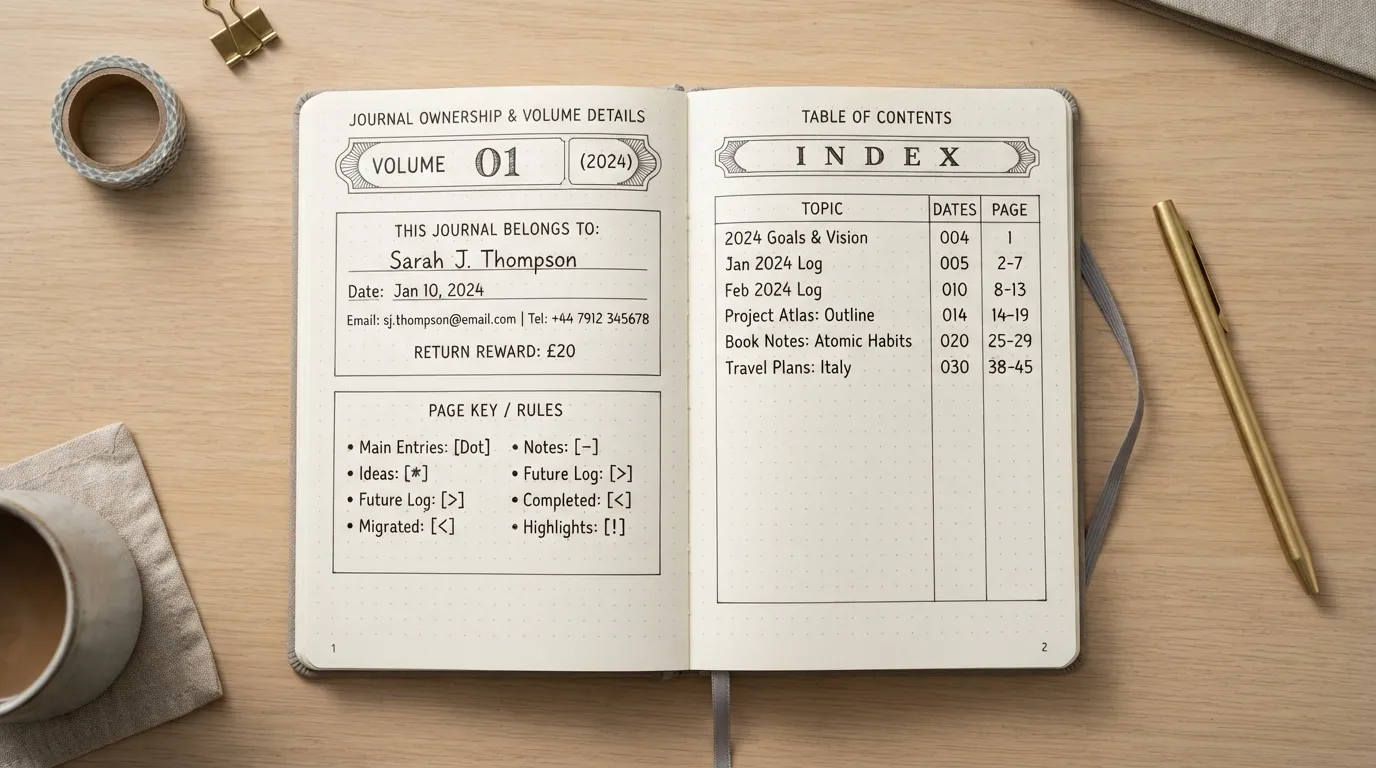 JOURNAL OWNERSHIP & VOLUME DETAILS
VOLUME 01 (2024)
THIS JOURNAL BELONGS TO:
Sarah J. Thompson
Date: Jan 10, 2024
Email: sj.thompson@email.com | Tel: +44 7912 345678
RETURN REWARD: £20
PAGE KEY / RULES
• Main Entries: [Dot] • Notes: [–]
• Ideas: [*] • Future Log: [>]
• Future Log: [>] • Completed: [<]
• Migrated: [<] • Highlights: [!]
1
TABLE OF CONTENTS
INDEX
TOPIC DATES PAGE
2024 Goals & Vision 004 1
Jan 2024 Log 005 2–7
Feb 2024 Log 010 8–13
Project Atlas: Outline 014 14–19
Book Notes: Atomic Habits 020 25–29
Travel Plans: Italy 030 38–45
2